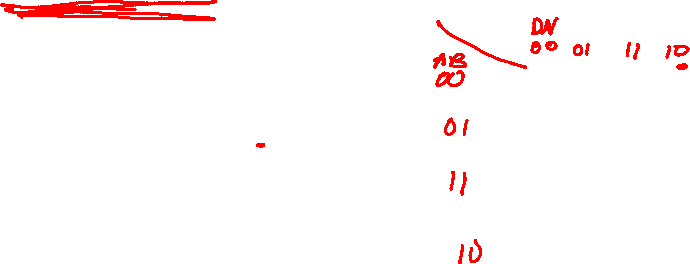 DN
00 01 11 10
AB
00
01
11
10